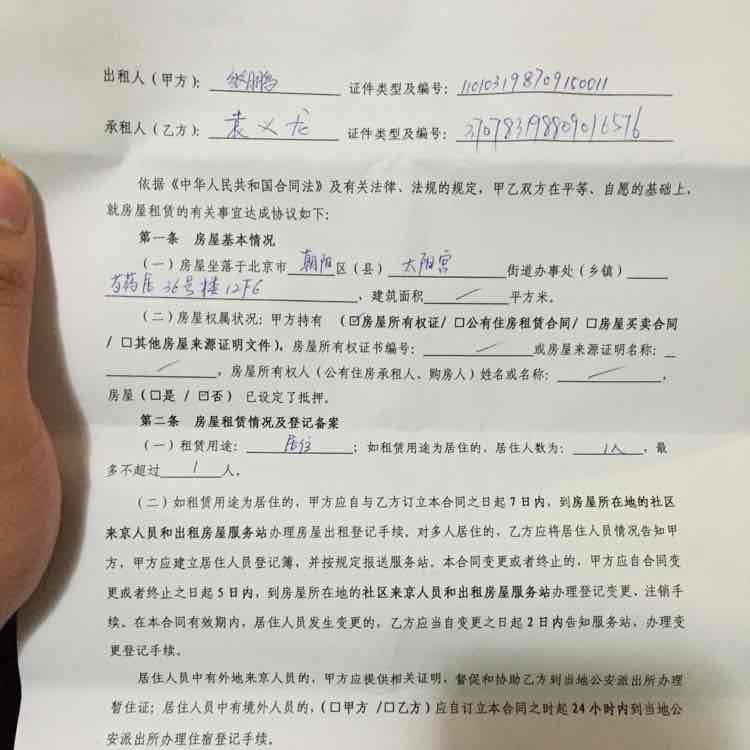 出租人（甲方）： 张鹏 证件类型及编号： 110103198709150011
承租人（乙方）： 袁义龙 证件类型及编号： 370783198809016576
依据《中华人民共和国合同法》及有关法律、法规的规定，甲乙双方在平等、自愿的基础上，
就房屋租赁的有关事宜达成协议如下：
第一条 房屋基本情况
（一）房屋坐落于北京市 朝阳 区（县） 太阳宫 街道办事处（乡镇）
芍药居36号楼12F6 ，建筑面积 平方米。
（二）房屋权属状况：甲方持有 （☑房屋所有权证/ □公有住房租赁合同/ □房屋买卖合同
/ □其他房屋来源证明文件），房屋所有权证书编号： 或房屋来源证明名称：
，房屋所有权人（公有住房承租人、购房人）姓名或名称： ，
房屋（□是 / ☑否）已设定了抵押。
第二条 房屋租赁情况及登记备案
（一）租赁用途： 居住 ；如租赁用途为居住的，居住人数为： 1人 ，最
多不超过 1 人。
（二）如租赁用途为居住的，甲方应自与乙方订立本合同之日起 7 日内，到房屋所在地的社区
来京人员和出租房屋服务站办理房屋出租登记手续。对多人居住的，乙方应将居住人员情况告知甲
方，甲方应建立居住人员登记簿，并按规定报送服务站。本合同变更或者终止的，甲方应自合同变
更或者终止之日起 5 日内，到房屋所在地的社区来京人员和出租房屋服务站办理登记变更、注销手
续。在本合同有效期内，居住人员发生变更的，乙方应当自变更之日起 2 日内告知服务站，办理变
更登记手续。
居住人员中有外地来京人员的，甲方应提供相关证明，督促和协助乙方到当地公安派出所办理
暂住证；居住人员中有境外人员的，（□甲方 /□乙方）应自订立本合同之时起 24 小时内到当地公
安派出所办理住宿登记手续。